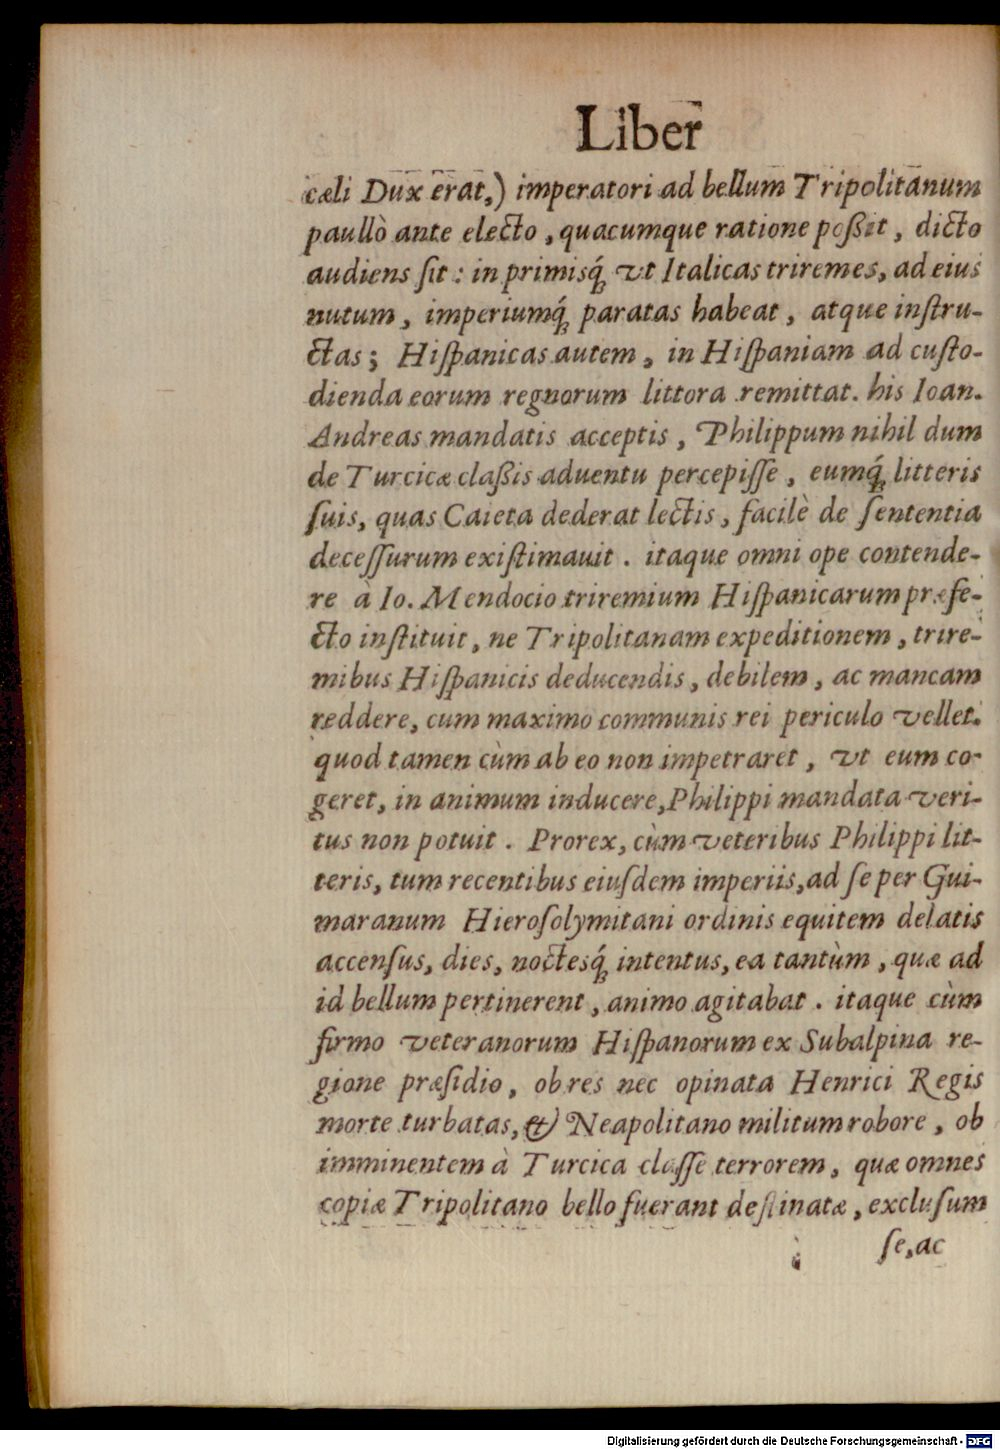 Liber
cæli Dux erat,) imperatori ad bellum Tripolitanum
paullò ante electo, quacumque ratione poßit, dicto
audiens ſit: in primisq́; vt Italicas triremes, ad eius
nutum, imperiumq́; paratas habeat, atque inſtru-
ctas; Hiſpanicas autem, in Hiſpaniam ad cuſto-
dienda eorum regnorum littora remittat. his Ioan.
Andreas mandatis acceptis, Philippum nihil dum
de Turcicæ claßis aduentu percepiſſe, eumq́; litteris
ſuis, quas Caieta dederat lectis, facilè de ſententia
deceſſurum exiſtimauit. itaque omni ope contende-
re à Io. Mendocio triremium Hiſpanicarum præfe-
cto inſtituit, ne Tripolitanam expeditionem, trire-
mibus Hiſpanicis deducendis, debilem, ac mancam
reddere, cum maximo communis rei periculo vellet.
quod tamen cùm ab eo non impetraret, vt eum co-
geret, in animum inducere, Philippi mandata veri-
tus non potuit. Prorex, cùm veteribus Philippi lit-
teris, tum recentibus eiuſdem imperiis, ad ſe per Gui-
maranum Hieroſolymitani ordinis equitem delatis
accenſus, dies, noctesq́; intentus, ea tantùm, quæ ad
id bellum pertinerent, animo agitabat. itaque cùm
firmo veteranorum Hiſpanorum ex Subalpina re-
gione præſidio, ob res nec opinata Henrici Regis
morte turbatas, & Neapolitano militum robore, ob
imminentem à Turcica claſſe terrorem, quæ omnes
copiæ Tripolitano bello fuerant deſtinatæ, excluſum
ſe, ac
Digitalisierung gefördert durch die Deutsche Forschungsgemeinschaft - DFG